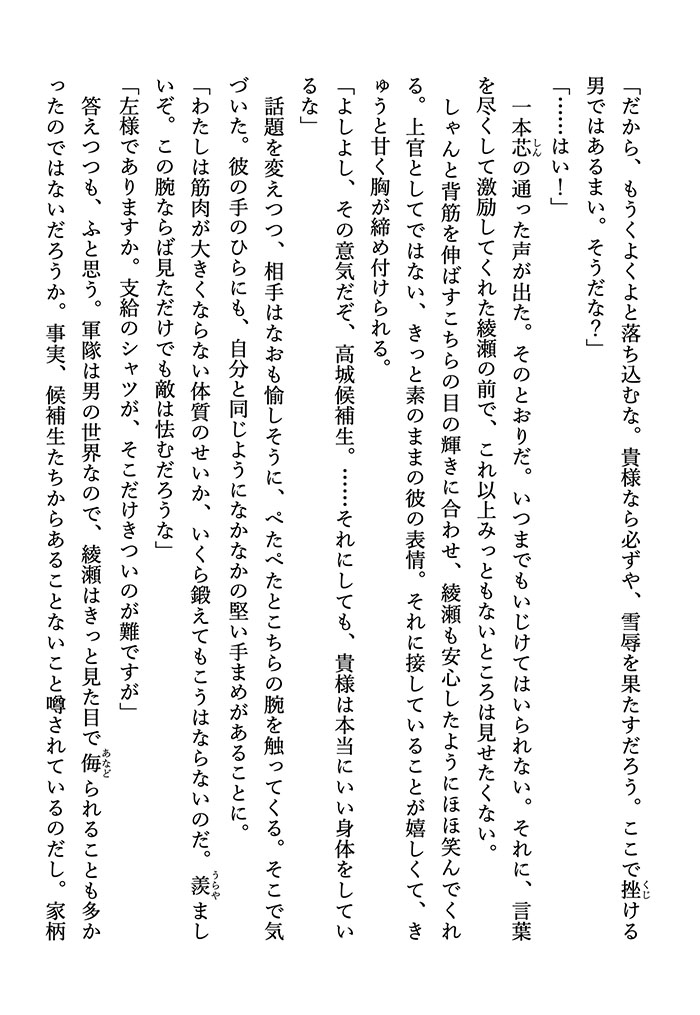 「だから、もうくよくよと落ち込むな。貴様なら必ずや、雪辱を果たすだろう。ここで挫ける
男ではあるまい。そうだな？」
「……はい！」
　一本芯の通った声が出た。そのとおりだ。いつまでもいじけてはいられない。それに、言葉
を尽くして激励してくれた綾瀬の前で、これ以上みっともないところは見せたくない。
　しゃんと背筋を伸ばすこちらの目の輝きに合わせ、綾瀬も安心したようにほほ笑んでくれ
る。上官としてではない、きっと素のままの彼の表情。それに接していることが嬉しくて、き
ゅうと甘く胸が締め付けられる。
「よしよし、その意気だぞ、高城候補生。……それにしても、貴様は本当にいい身体をしてい
るな」
　話題を変えつつ、相手はなおも愉しそうに、ぺたぺたとこちらの腕を触ってくる。そこで気
づいた。彼の手のひらにも、自分と同じようになかなかの堅い手まめがあることに。
「わたしは筋肉が大きくならない体質のせいか、いくら鍛えてもこうはならないのだ。羨まし
いぞ。この腕ならば見ただけでも敵は怯むだろうな」
「左様でありますか。支給のシャツが、そこだけきついのが難ですが」
　答えつつも、ふと思う。軍隊は男の世界なので、綾瀬はきっと見た目で侮られることも多か
ったのではないだろうか。事実、候補生たちからあることないこと噂されているのだし。家柄